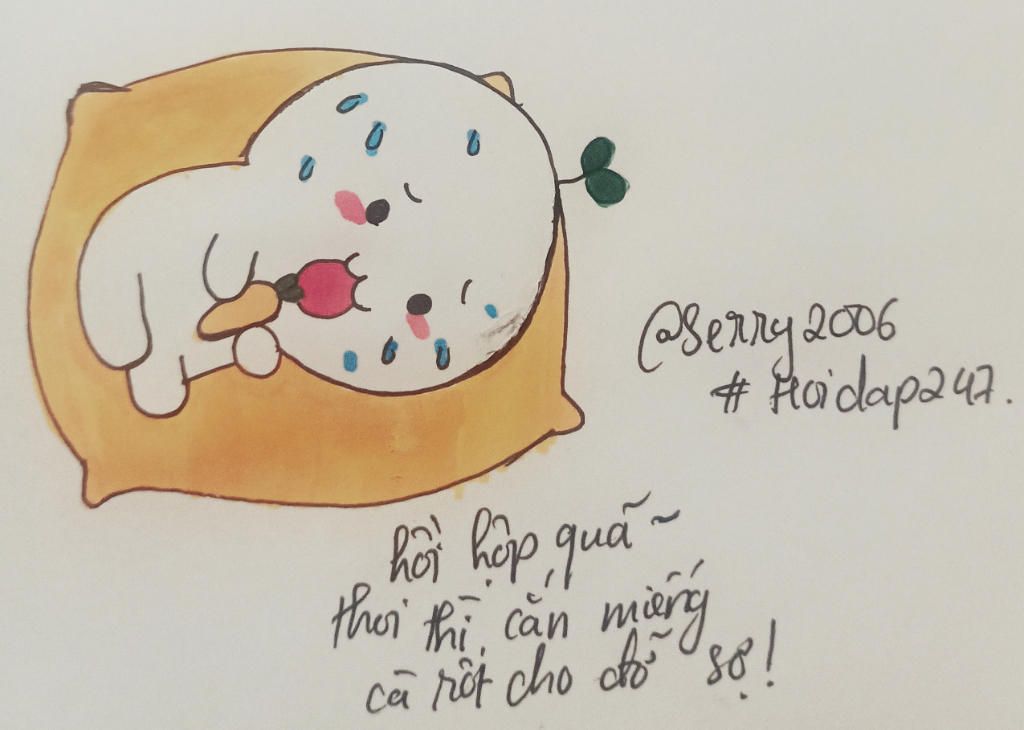 @Serry2006
# Hoidap247.
hồi hộp quã ~
thơi thì cắn miếng
cà rốt cho đỡ sợ!